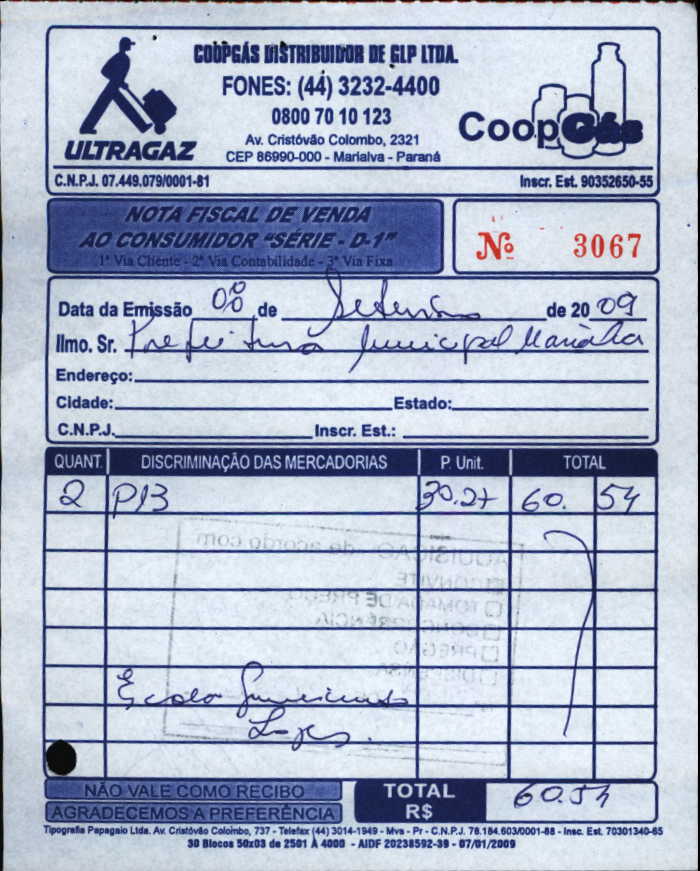 COOPGÁS DISTRIBUIDOR DE GLP LTDA.
FONES: (44) 3232-4400
0800 70 10 123
Av. Cristóvão Colombo, 2321
CEP 86990-000 - Marialva - Paraná
ULTRAGAZ
CoopGás
C.N.P.J. 07.449.079/0001-81
Inscr. Est. 90352650-55
NOTA FISCAL DE VENDA
AO CONSUMIDOR "SÉRIE - D-1"
1ª Via Cliente - 2ª Via Contabilidade - 3ª Via Fixa
Nº 3067
Data da Emissão de Setembro de 2009
Ilmo. Sr. Prefeitura Municipal Marialva
Endereço:
Cidade: Estado:
C.N.P.J. Inscr. Est.:
QUANT. DISCRIMINAÇÃO DAS MERCADORIAS P. Unit. TOTAL
2 P13 30.27 60. 54
AQUISIÇÃO de acordo com
CONVITE
TOMADA DE PREÇO
CONCORRÊNCIA
PREGÃO
DISPENSA
Escola
NÃO VALE COMO RECIBO
AGRADECEMOS A PREFERÊNCIA
TOTAL R$ 60.54
Tipografia Papagaio Ltda. Av. Cristóvão Colombo, 737 - Telefax (44) 3014-1949 - Mva - Pr - C.N.P.J. 78.184.603/0001-88 - Insc. Est. 70301340-65
30 Blocos 50x03 de 2501 À 4000 - AIDF 20238592-39 - 07/01/2009